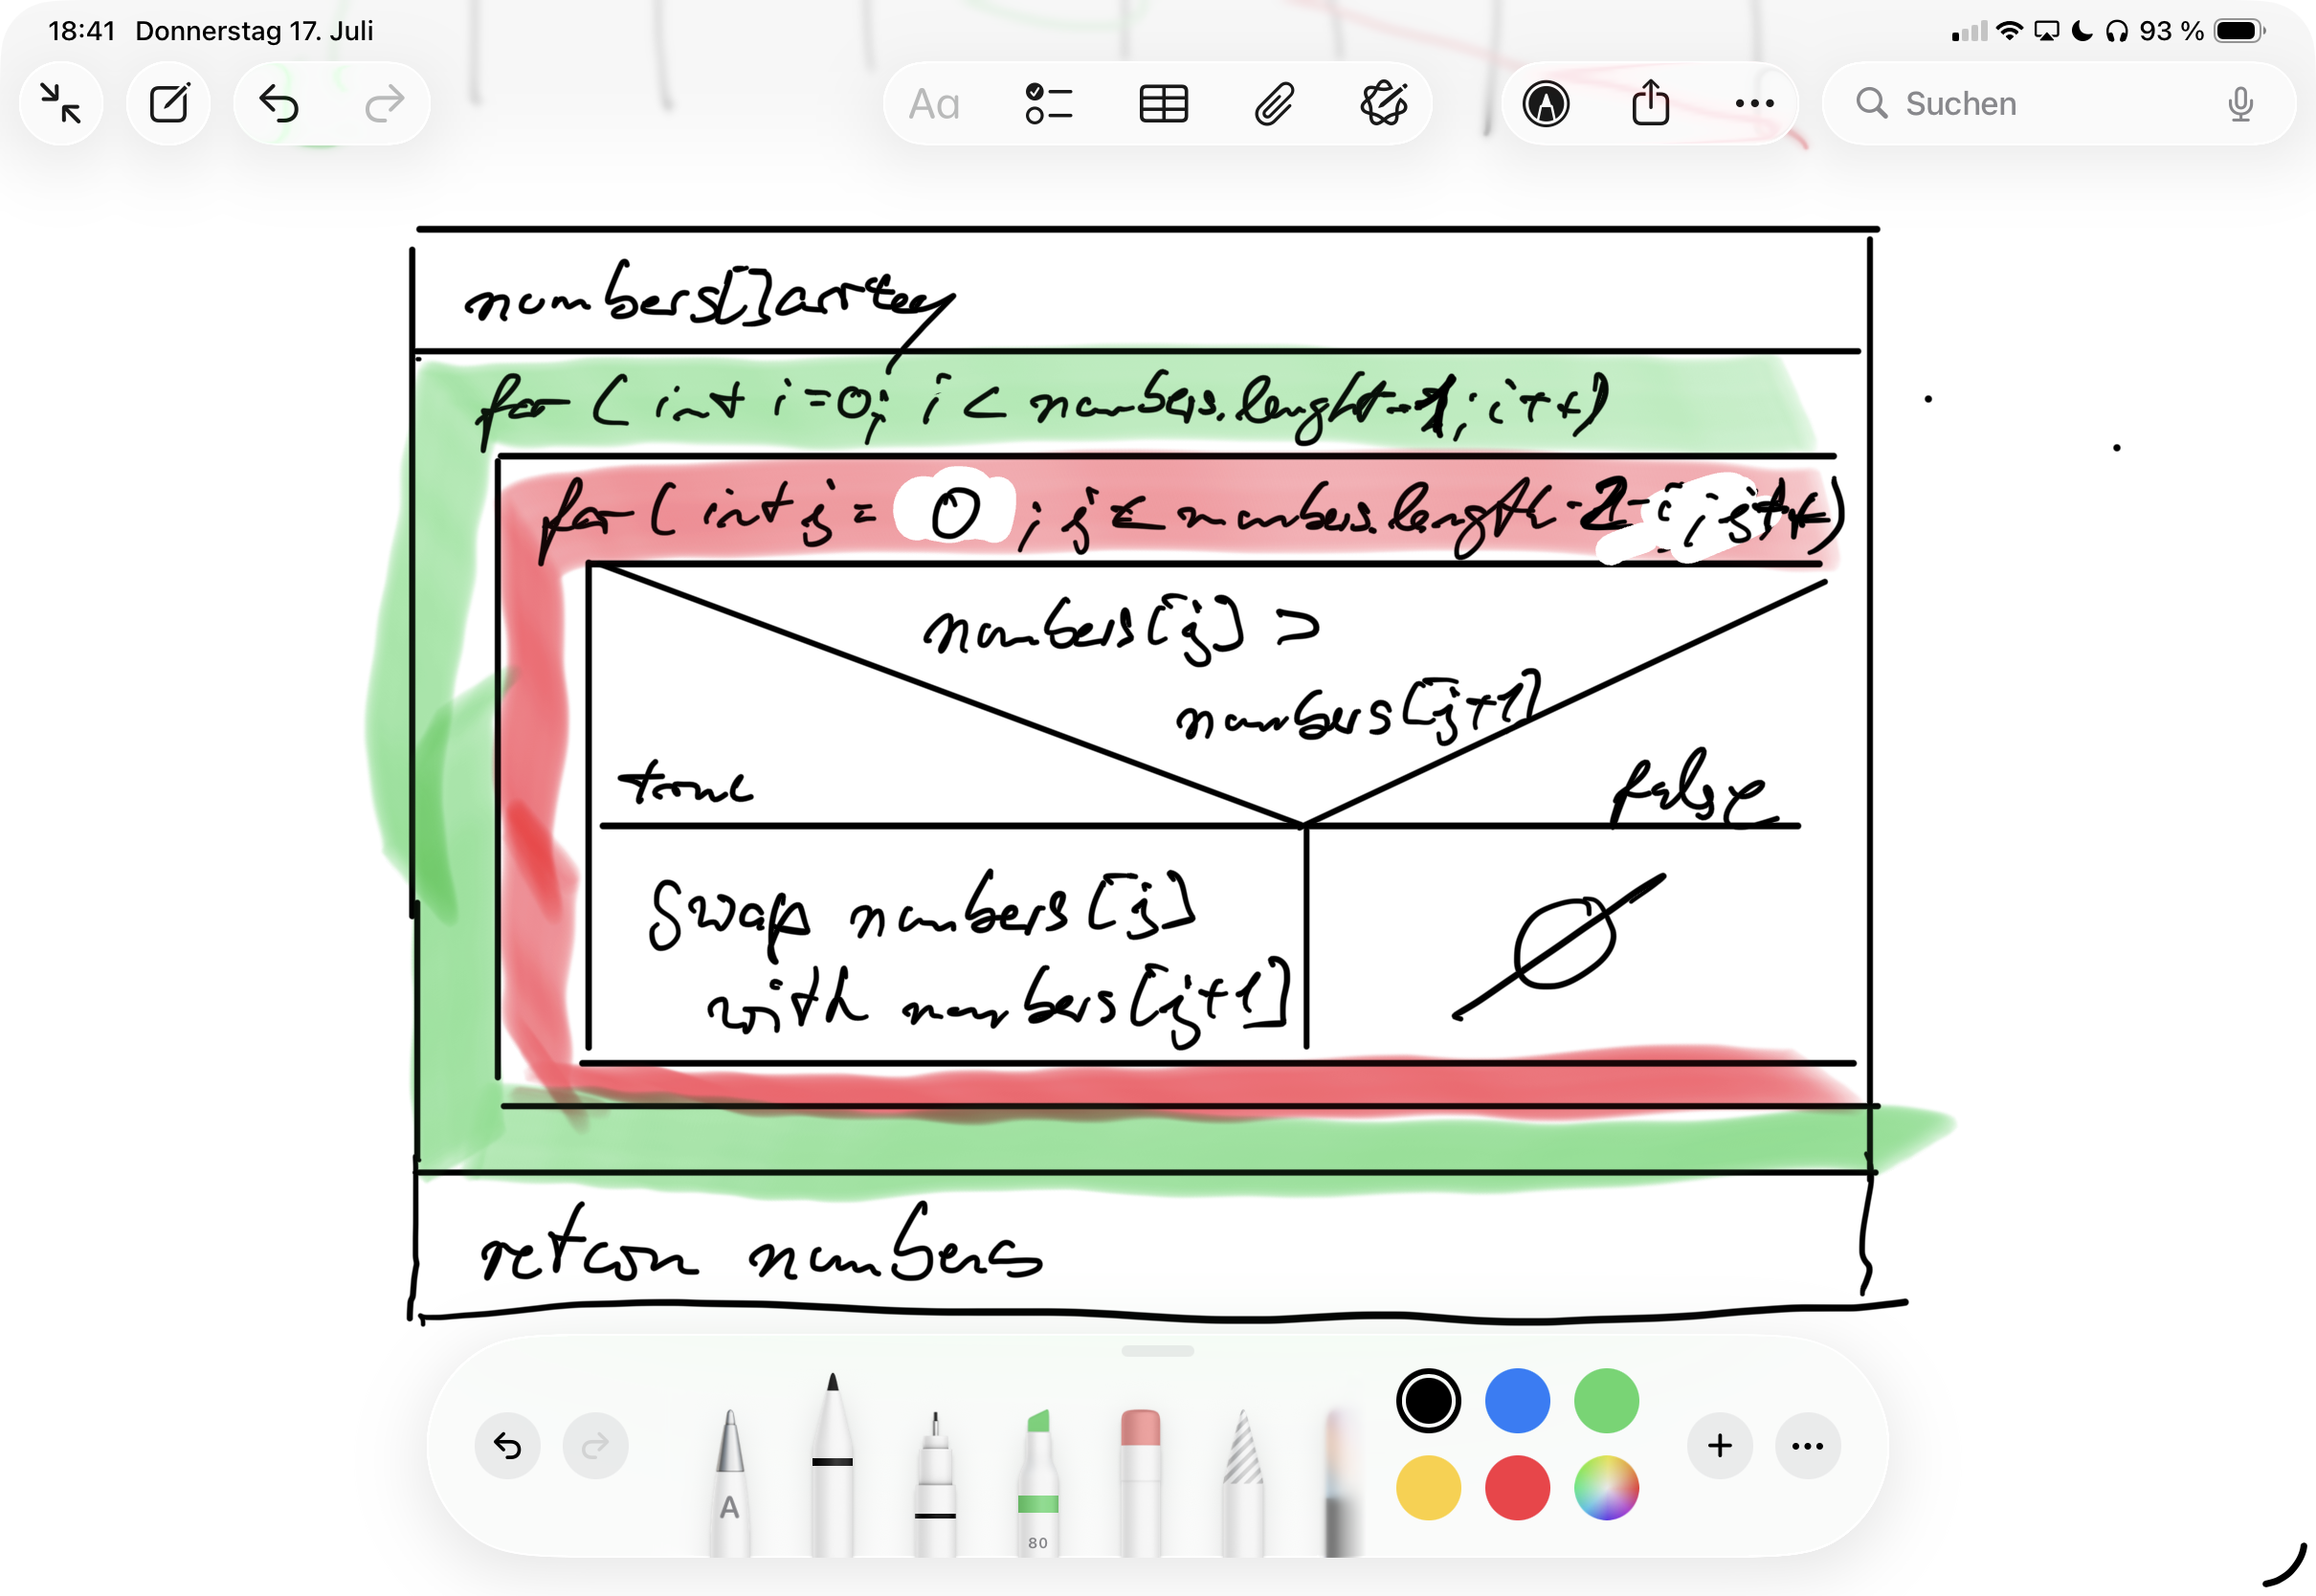 18:41 Donnerstag 17. Juli 93 %
Aa Suchen
numbers[] array
for (int i=0; i < numbers.lenght-1; i++)
for (int j = 0; j ≤ numbers.length-2-i; j++)
numbers[j] >
numbers[j+1]
true false
Swap numbers[j]
with numbers[j+1]
return numbers
A
80